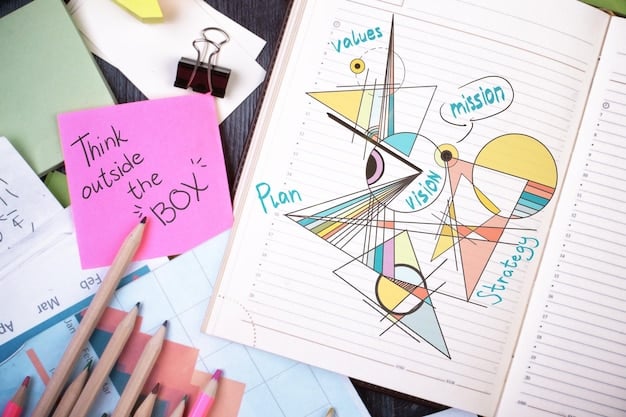 Think
outside
the
BOX
values
mission
Plan
vision
Strategy
Feb
Mar
Ap
Jan